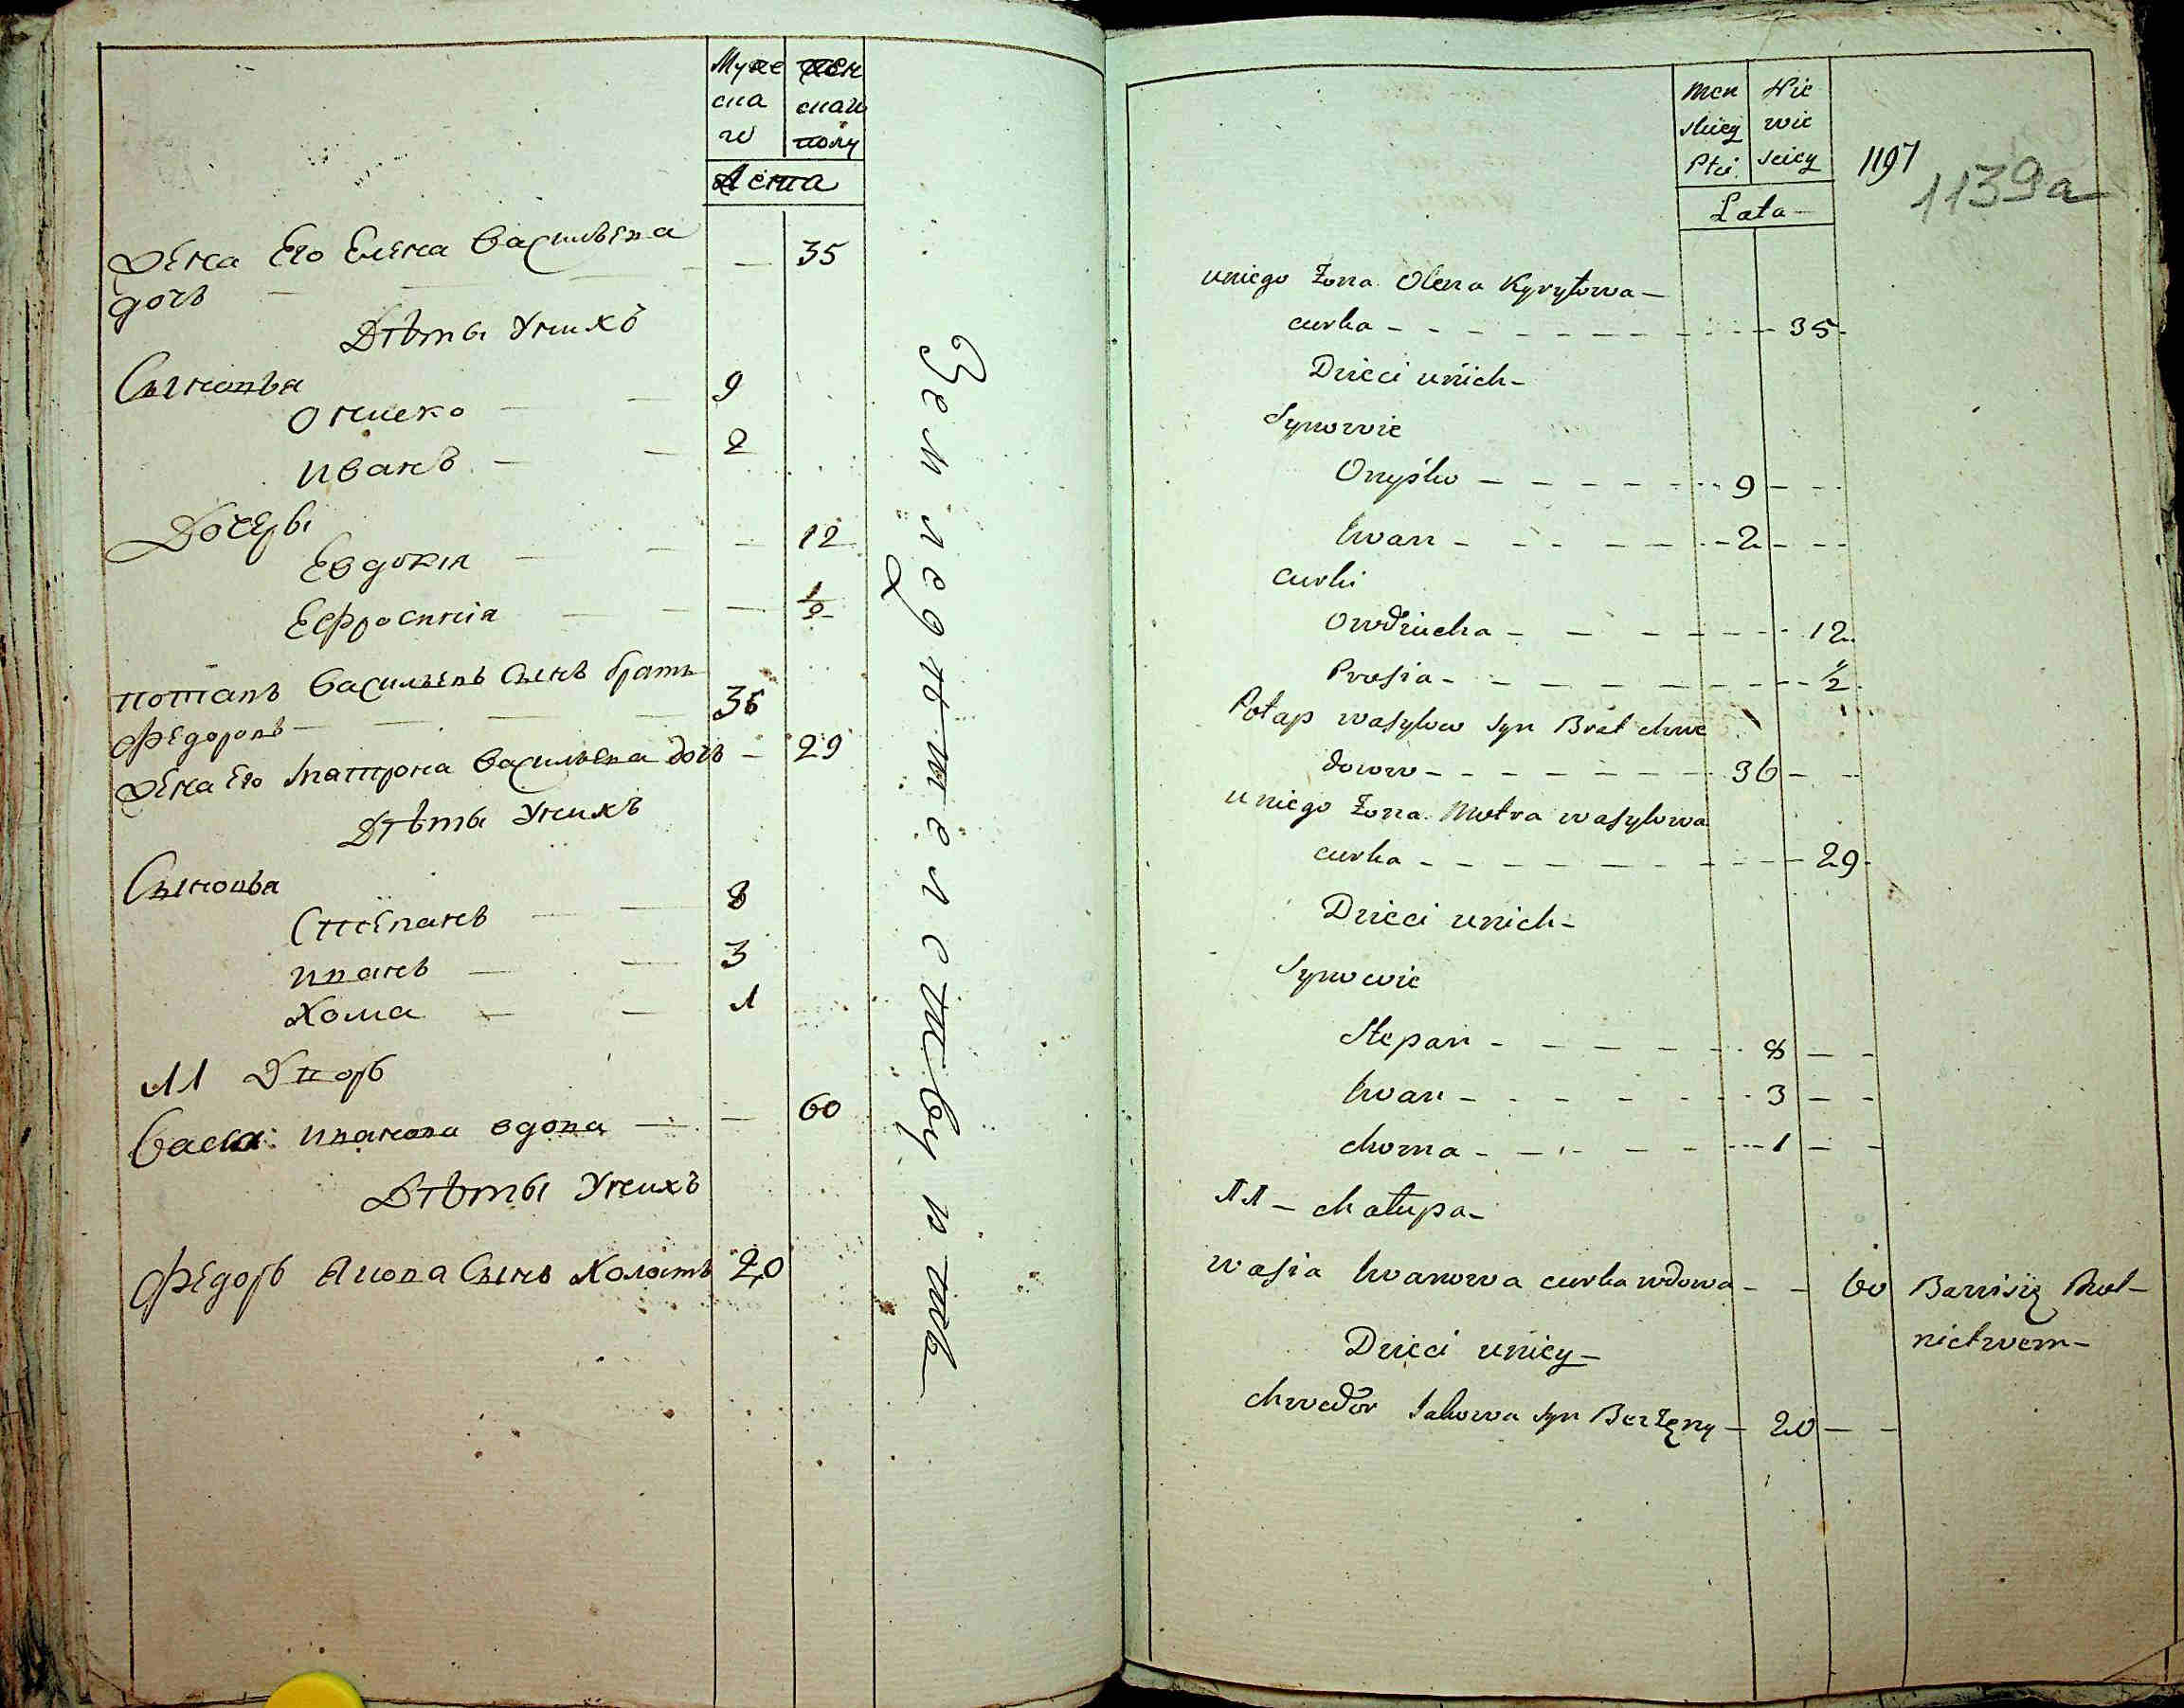 Муже жен
ска скаго
го полу
Лета
Жена Его Елена Васильева 35
дочь
Дѣты Унихъ
Сыновья
Ониско 9
Иванъ 2
Дочеры
Евдокия 12
Ефросиния 1/2
Потапъ Васильевъ Сынъ братъ
Федоровъ 36
Жена Его Матрона Васильева дочь 29
Дѣты Унихъ
Сыновья
Степанъ 8
Иванъ 3
Хома 1
11 Дворъ
Васса Иванова вдова 60
Дѣты Унихъ
Федоръ Яковa Сынъ Холостъ 20
Земледѣтелствуитъ
Men Nie
skiey wie
Płci sciey
Lata
1197
1139a
uniego Zona Olena Kyryłowa
curka 35
Dzieci unich
Synowie
Onyśko 9
Iwan 2
curki
Owdziucha 12
Prosia 1/2
Potap wasylow syn Brat chwe
dorow 36
uniego Żona Motra wasylowa
curka 29
Dzieci unich
Synowie
Stepan 8
Iwan 3
choma 1
11 chałupa
wasia Iwanowa curka wdowa 60 Bawi się Rol-
nictwem
Dzieci uniey
chwedor Jakowa syn Bezżęny 20